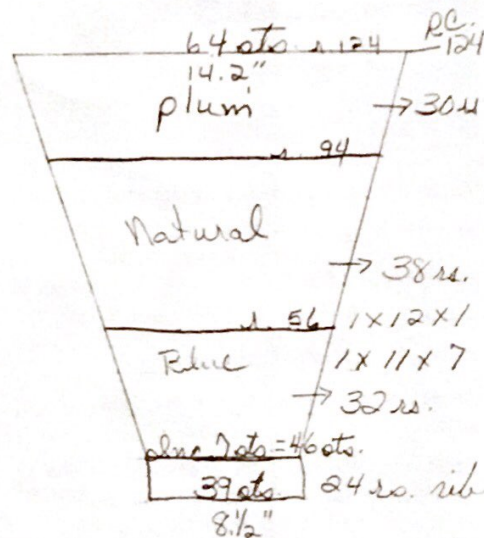 64 sts. r. 124
R.C. 124
14.2"
plum
→ 30 rs
r. 94
Natural
→ 38 rs.
r. 56
1 x 12 x 1
Blue
1 x 11 x 7
→ 32 rs.
Inc 7 sts = 46 sts.
39 sts. 24 rs. rib
8 1/2"